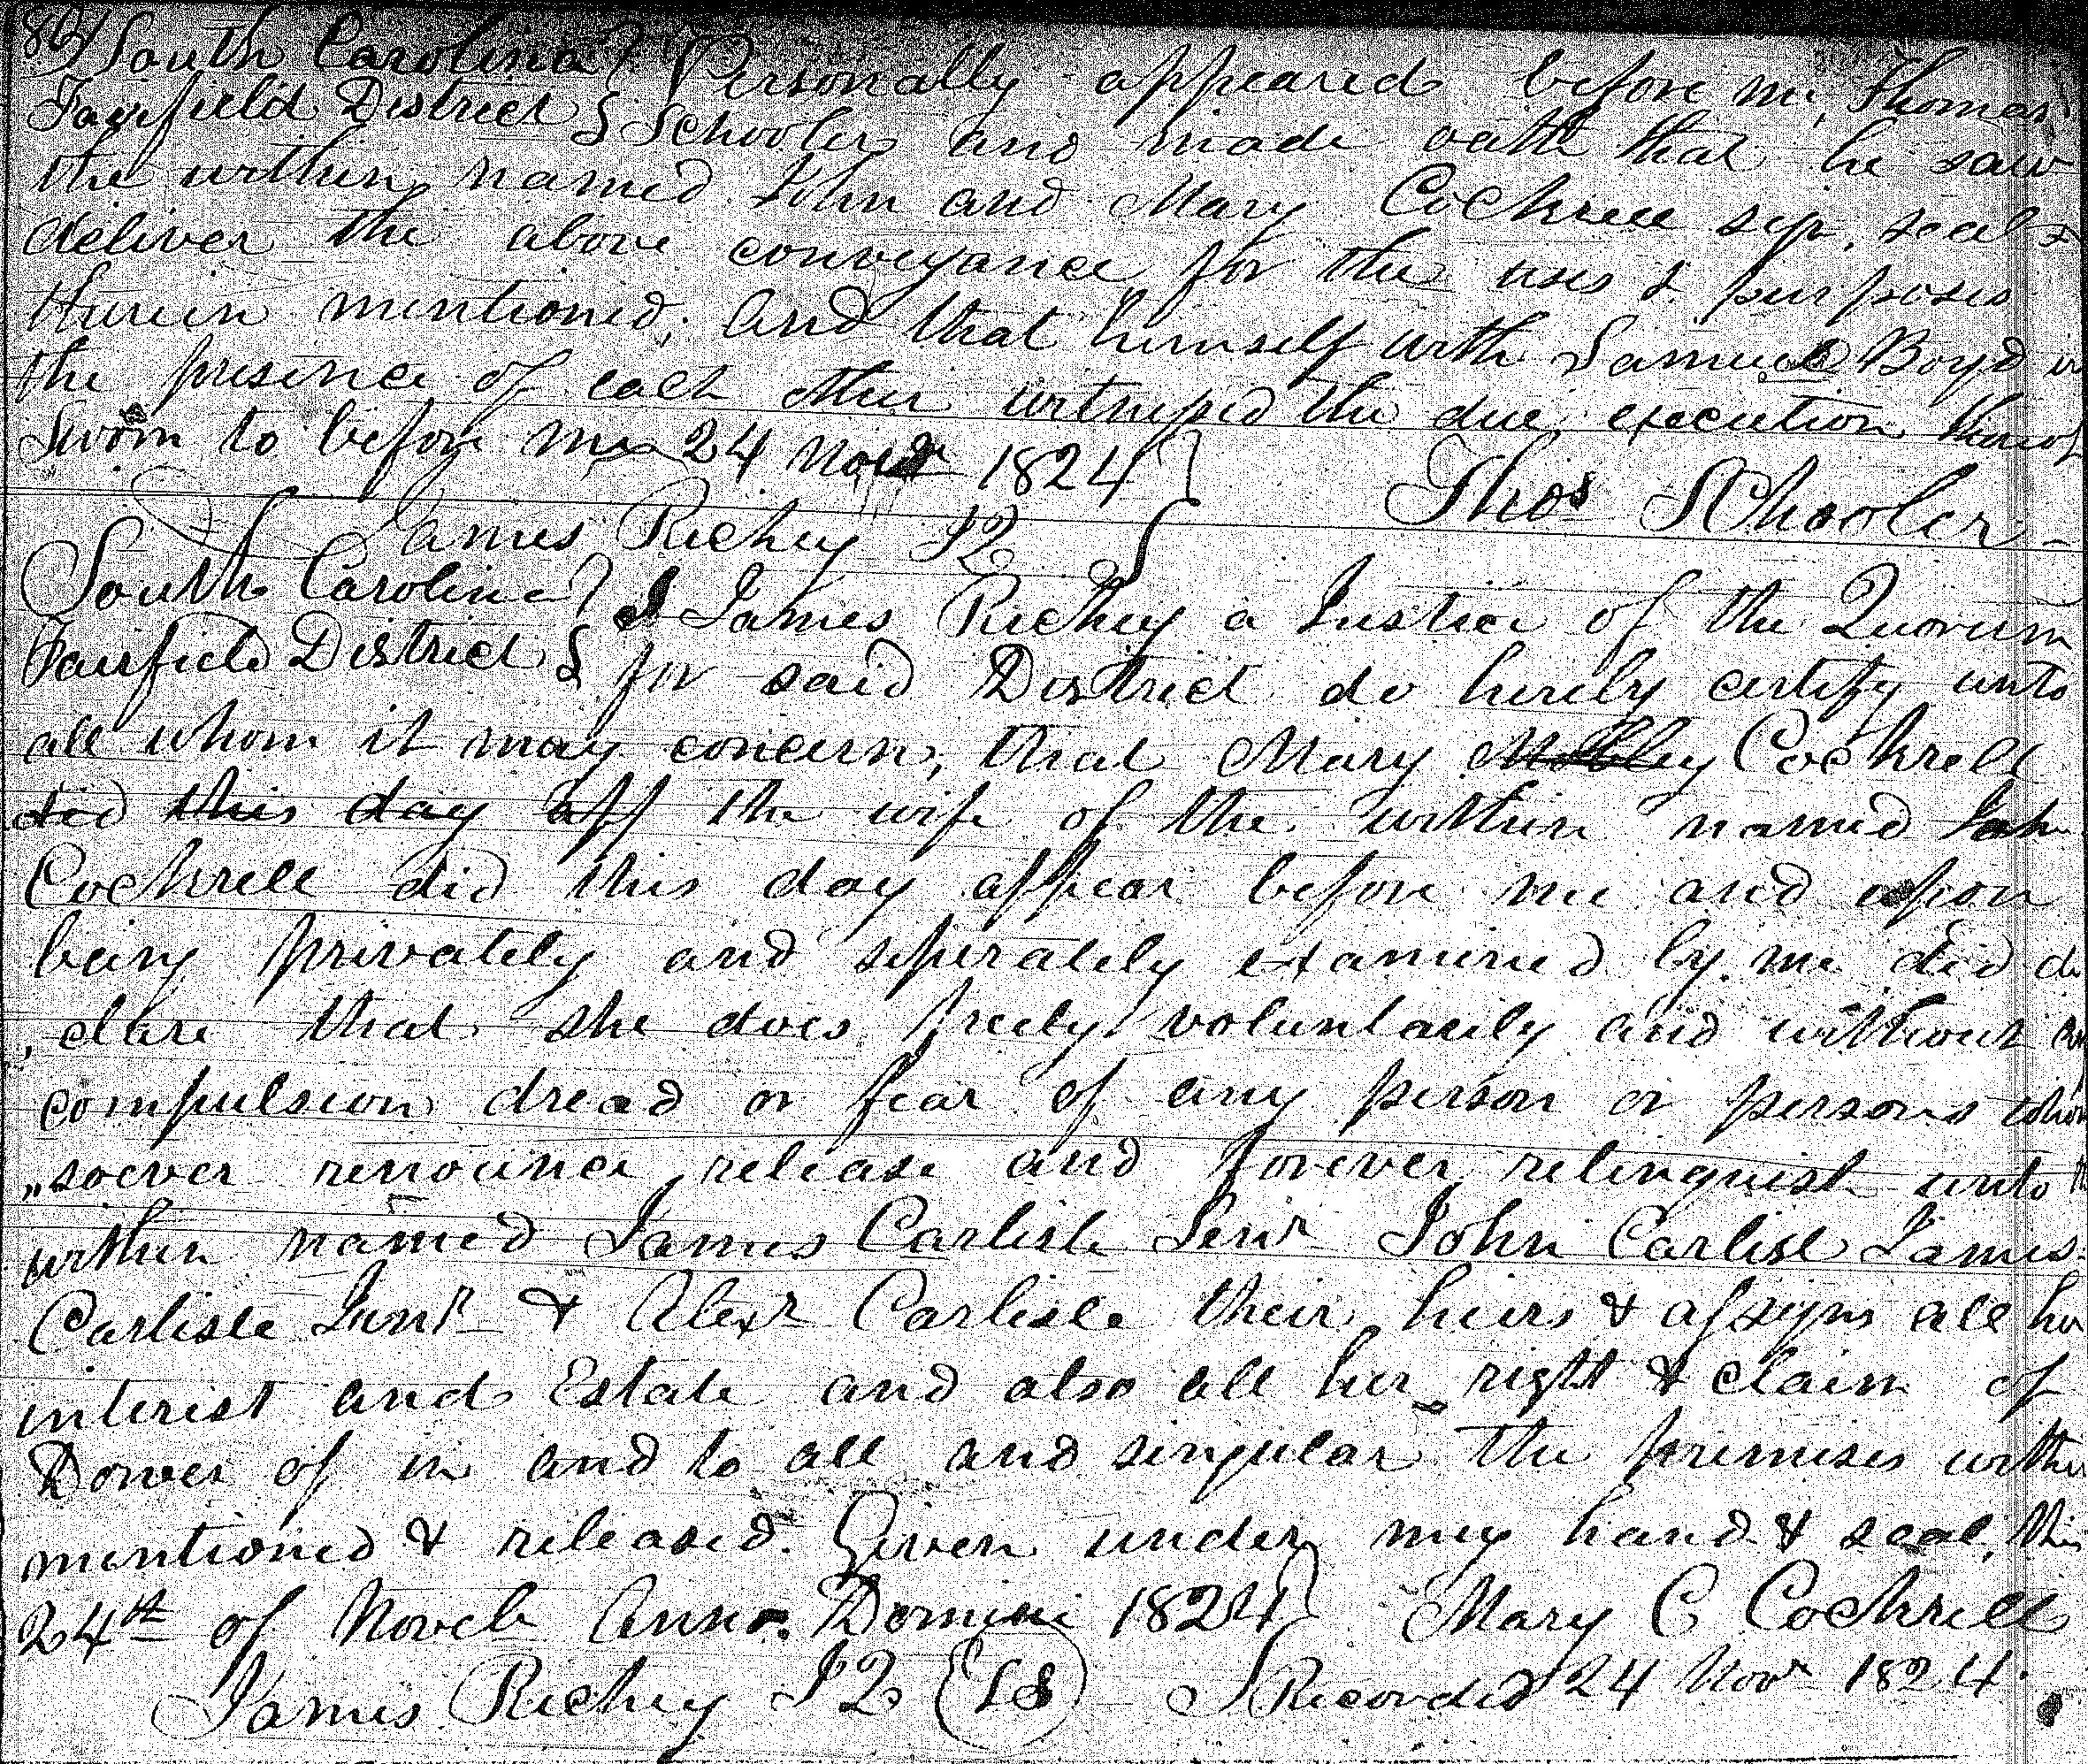 South Carolina } Personally appeared before me, Thomas
Fairfield District } Schooler and made oath that he saw
the within named John and Mary Cockrell sign, seal &
deliver the above conveyance for the uses & purposes
therein mentioned; And that himself with Samuel Boyd in
the presence of each other witnessed the due execution thereof
Sworn to before me 24 Novr 1824 }
Thos Schooler
James Richey J Q }
South Carolina } I James Richey a Justice of the Quorum
Fairfield District } for said District do hereby certify unto
all whom it may concern, that Mary Mobley Cockrell
did this day app the wife of the within named John
Cockrell did this day appear before me and upon
being privately and seperately examined by me did de
, clare that she does freely voluntarily and without any
compulsion dread or fear of any person or persons whom
„soever renounce release and forever relinquish unto the
within named James Carlisle Senr John Carlisl James
Carlisle Junr & Alexr Carlisle their heirs & assigns all her
interist and Estate and also all her right & claim of
Dower of in and to all and singular the premises within
mentioned & released. Given under my hand & seal, this
24th of Noveb Anno. Domini 1824 } Mary C Cockrell
James Richey J Q (LS) Recorded 24 Novr 1824.